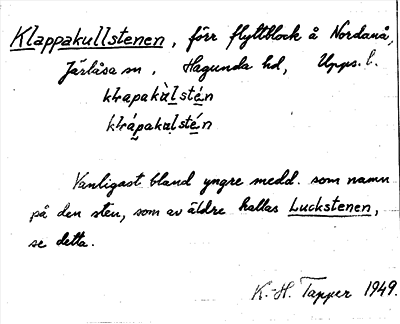 Klappakullstenen, förr flyttblock å Nordanå,
Järlåsa sn, Hagunda hd, Upps. l.
klapakùlstén
klápakulstén
Vanligast bland yngre medd. som namn
på den sten, som av äldre kallas Luckstenen,
se detta.
K.-H. Tapper 1949.